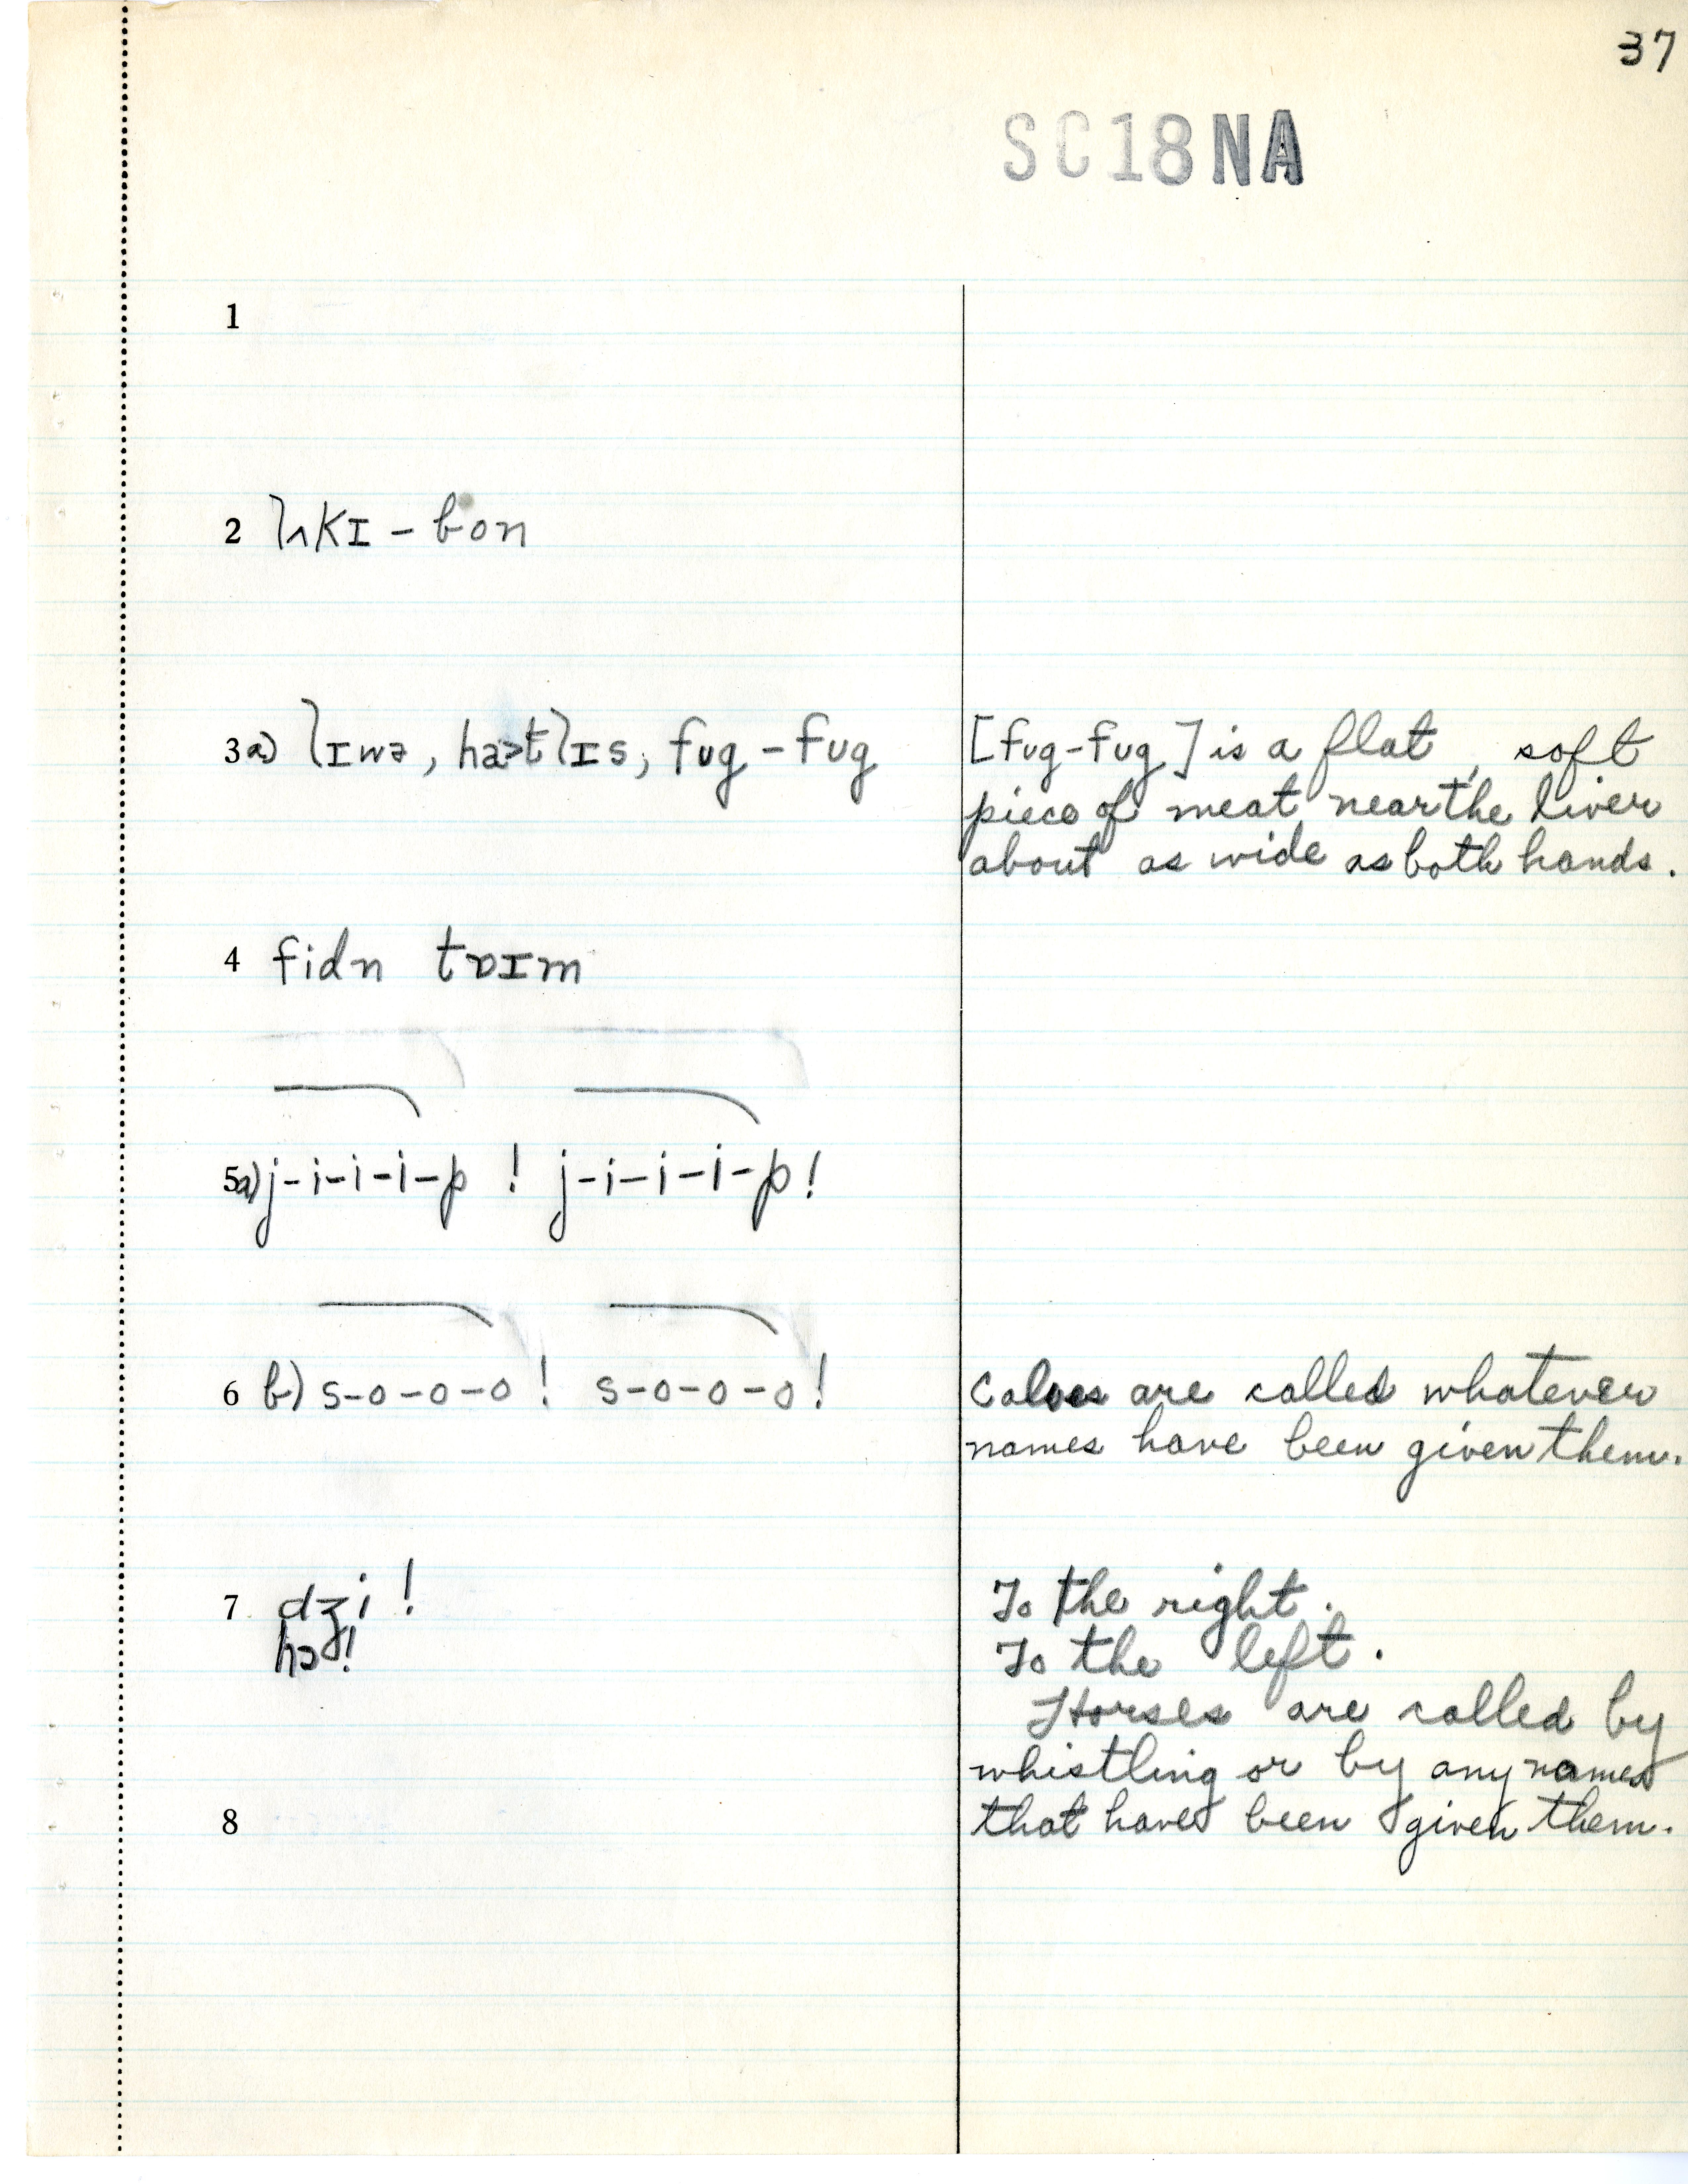 37
SC18NA
1
2 lʌkɪ - bon
3a) lɪwə, ha>tlɪs, fug-fug [fug-fug] is a flat, soft
piece of meat near the liver
about as wide as both hands.
4 fidn tɒɪm
5a) j-i-i-i-p ! j-i-i-i-p!
6 b) s-o-o-o ! s-o-o-o! Calves are called whatever
names have been given them.
7 dʒi ! To the right.
hɔ! To the left.
Horses are called by
whistling or by any names
8 that have been given them.